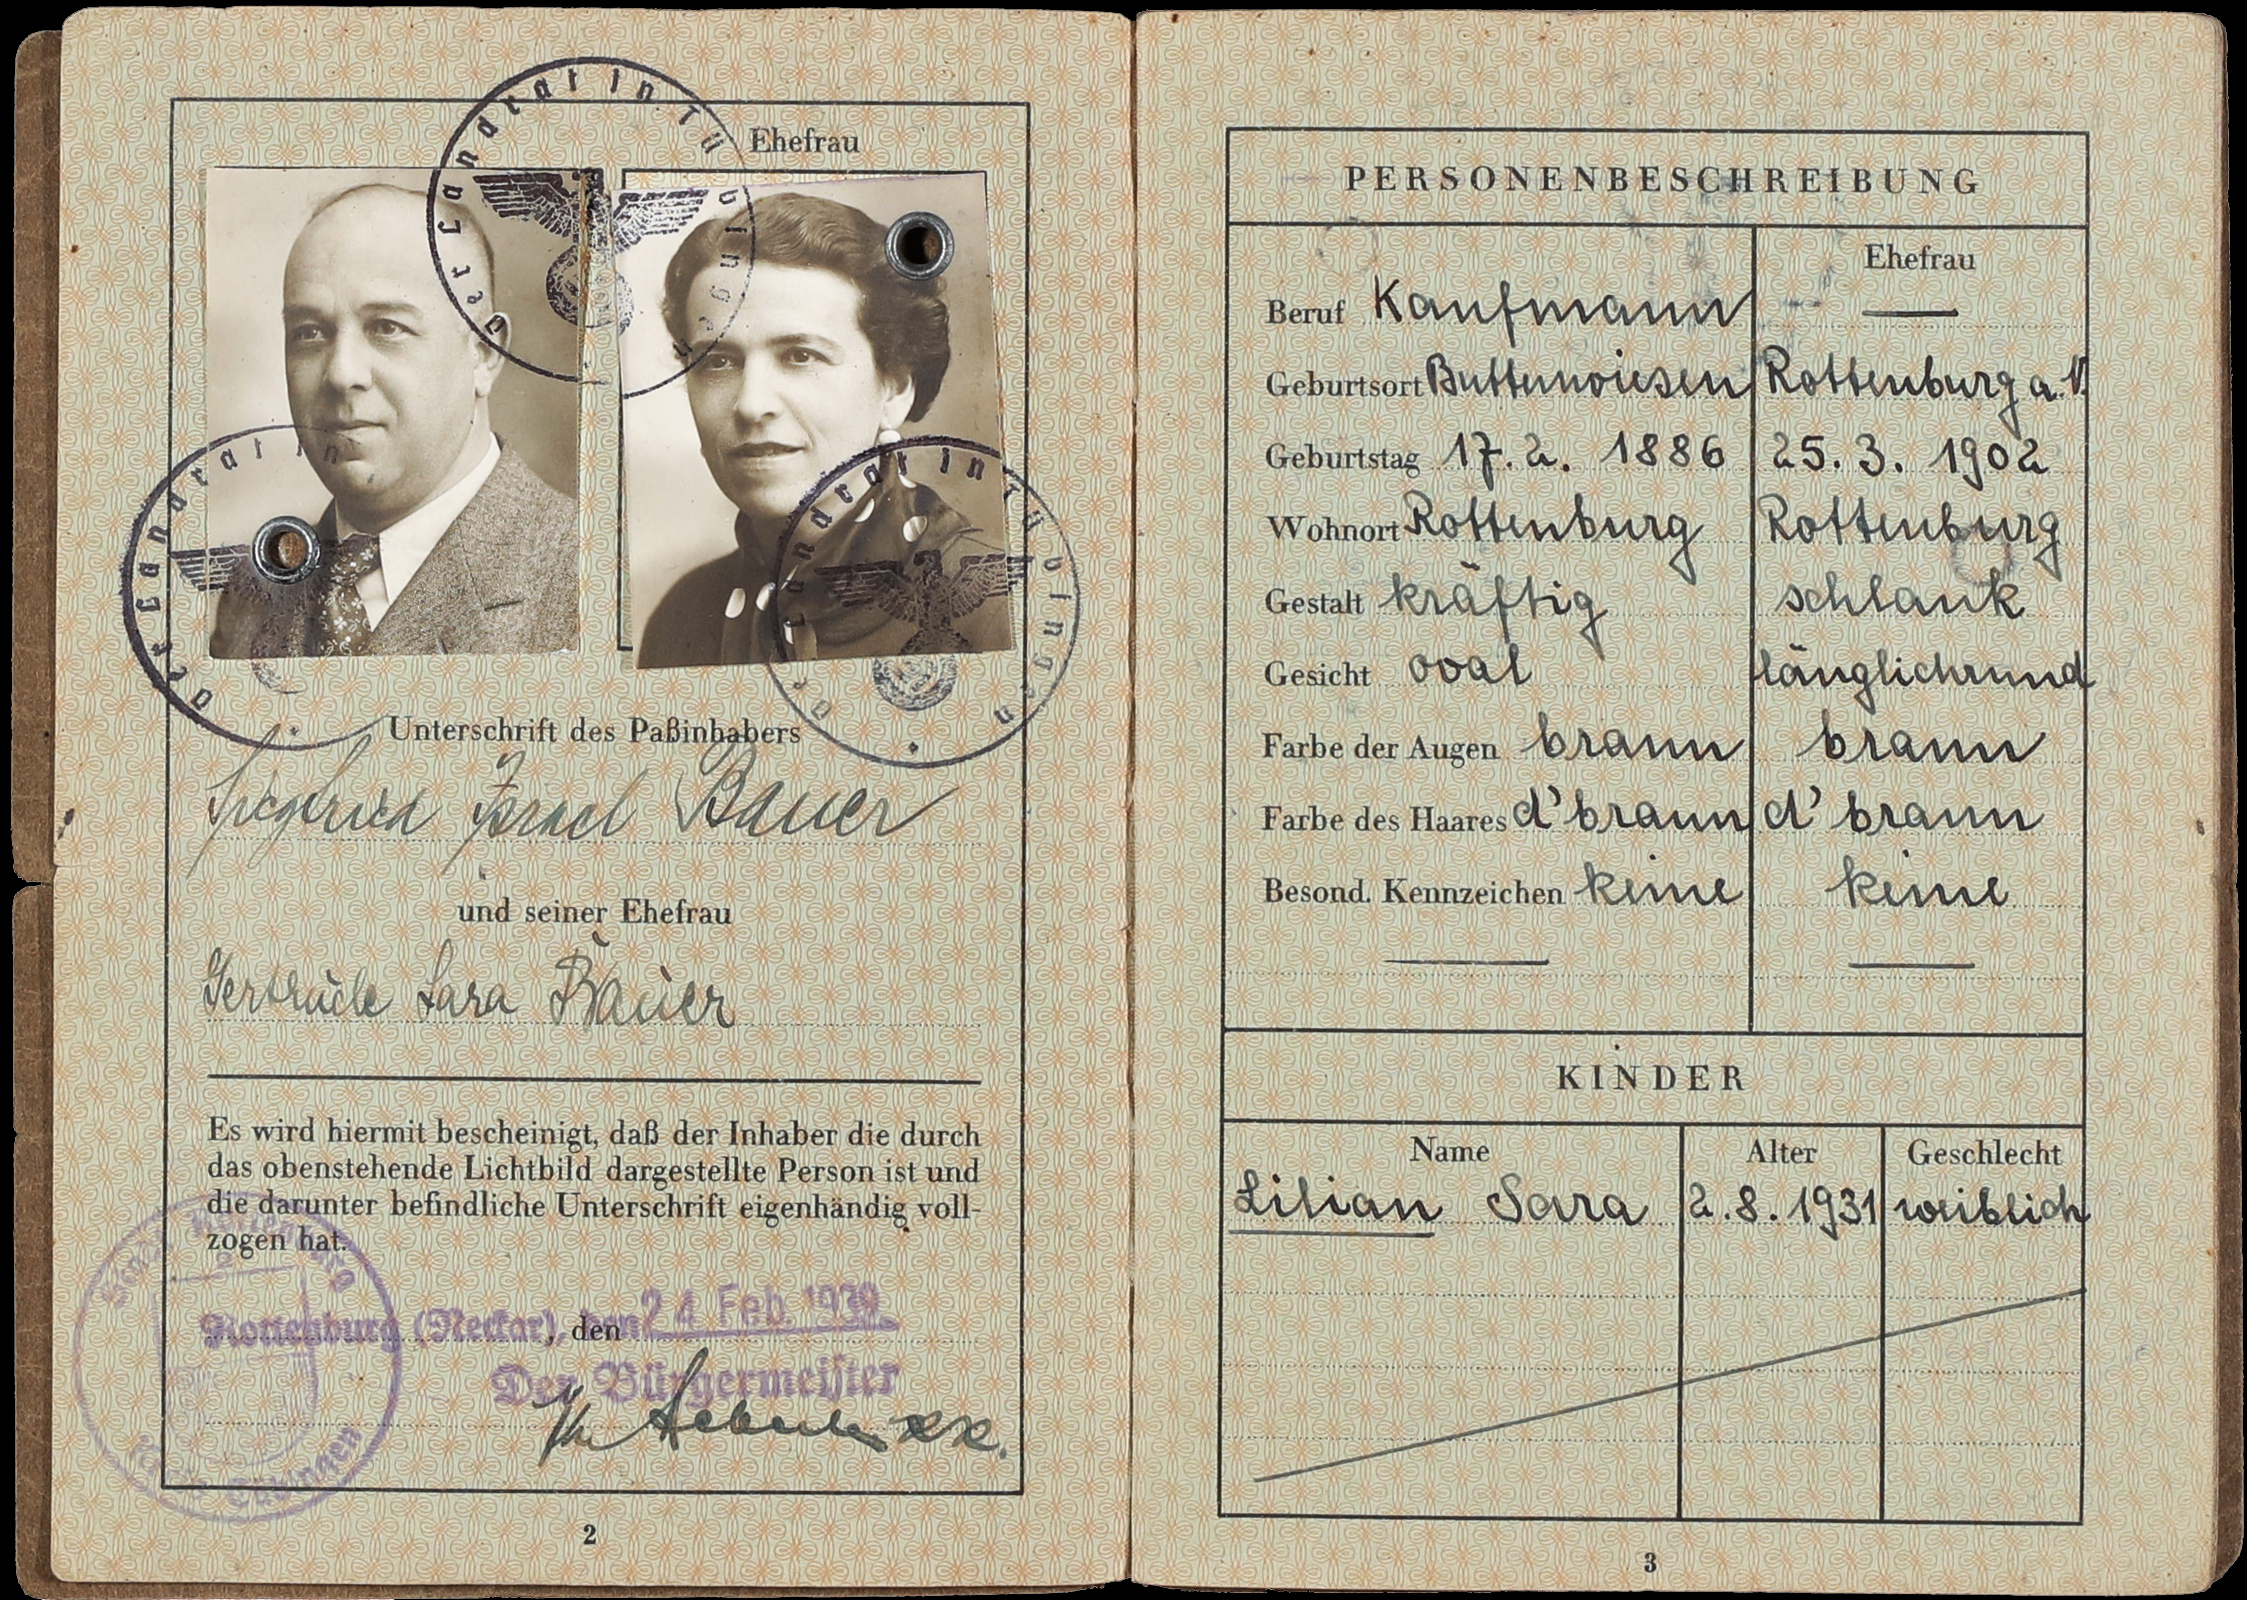 Ehefrau
Der Landrat in Tübingen
Der Landrat in Tübingen
Der Landrat in Tübingen
Unterschrift des Paßinhabers
Siegfried Israel Bauer
und seiner Ehefrau
Gertrude Sara Bauer
Es wird hiermit bescheinigt, daß der Inhaber die durch
das obenstehende Lichtbild dargestellte Person ist und
die darunter befindliche Unterschrift eigenhändig voll-
zogen hat.
Rottenburg (Neckar), den 24 Feb. 1939
Der Bürgermeister
Rottenburg
Kreis Tübingen
2
PERSONENBESCHREIBUNG
Ehefrau
Beruf Kaufmann —
Geburtsort Buttenwiesen Rottenburg a.N.
Geburtstag 17.2. 1886 25.3. 1902
Wohnort Rottenburg Rottenburg
Gestalt kräftig schlank
Gesicht oval länglichrund
Farbe der Augen braun braun
Farbe des Haares d'braun d'braun
Besond. Kennzeichen keine keine
KINDER
Name Alter Geschlecht
Lilian Sara 2.8.1931 weiblich
3